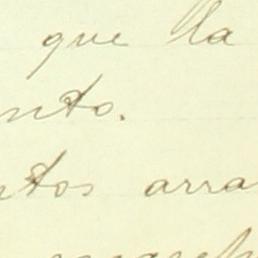 que la
nto.
ntos arra